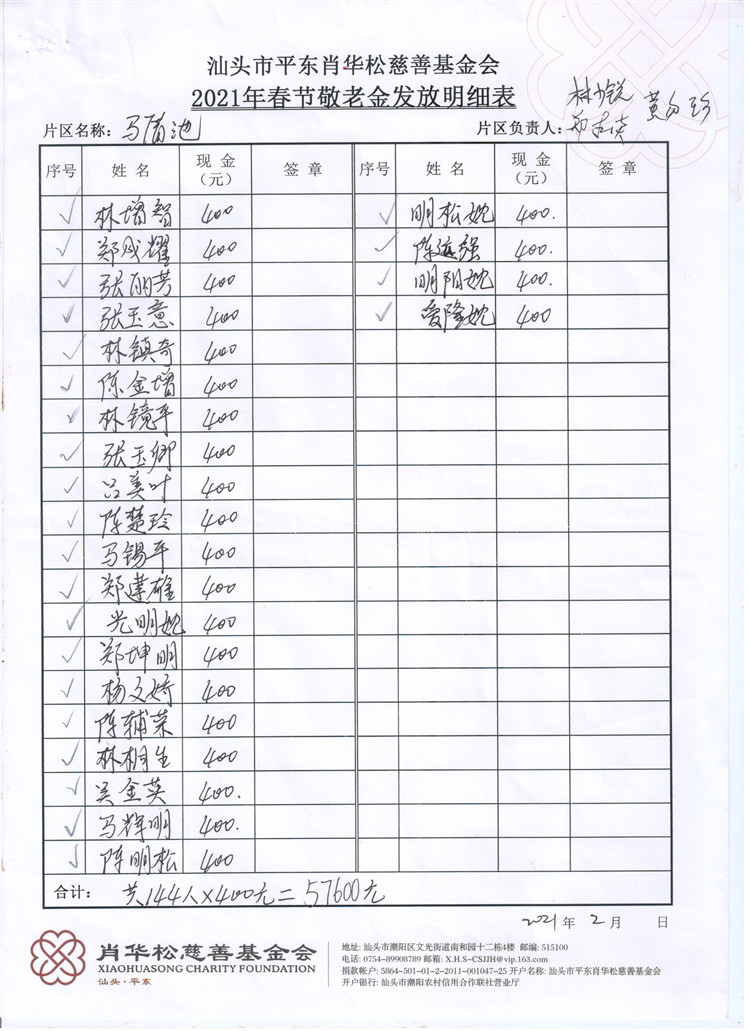 汕头市平东肖华松慈善基金会
2021年春节敬老金发放明细表
片区名称：
片区负责人：
序号 姓 名 现 金（元） 签 章 序号 姓 名 现 金（元） 签 章
✓ 林增智 400 ✓ 明松婉 400.
✓ 郑成耀 400 ✓ 陈远强 400.
✓ 张丽芳 400 ✓ 明阳婉 400.
✓ 张玉意 400 ✓ 爱隆婉 400
✓ 林镇奇 400
✓ 陈金增 400
✓ 林镜平 400
✓ 张玉卿 400
✓ 吕美叶 400
✓ 陈楚玲 400
✓ 马锡平 400
✓ 郑莲雄 400
✓ 光明婉 400
✓ 郑坤明 400
✓ 杨文婷 400
✓ 陈辅荣 400
✓ 林桐生 400
✓ 吴金英 400.
✓ 马辉明 400.
✓ 陈明松 400
合计： 共144人×400元=57600元
2021年 2月 日
肖华松慈善基金会
XIAOHUASONG CHARITY FOUNDATION
汕头·平东
地址: 汕头市潮阳区文光街道南和园十二栋4楼 邮编: 515100
电话: 0754-89908789 邮箱: X.H.S-CSJJH@vip.163.com
捐款帐户: 5864-501-01-2-2011-001047-25 开户名称: 汕头市平东肖华松慈善基金会
开户银行: 汕头市潮阳农村信用合作联社营业厅